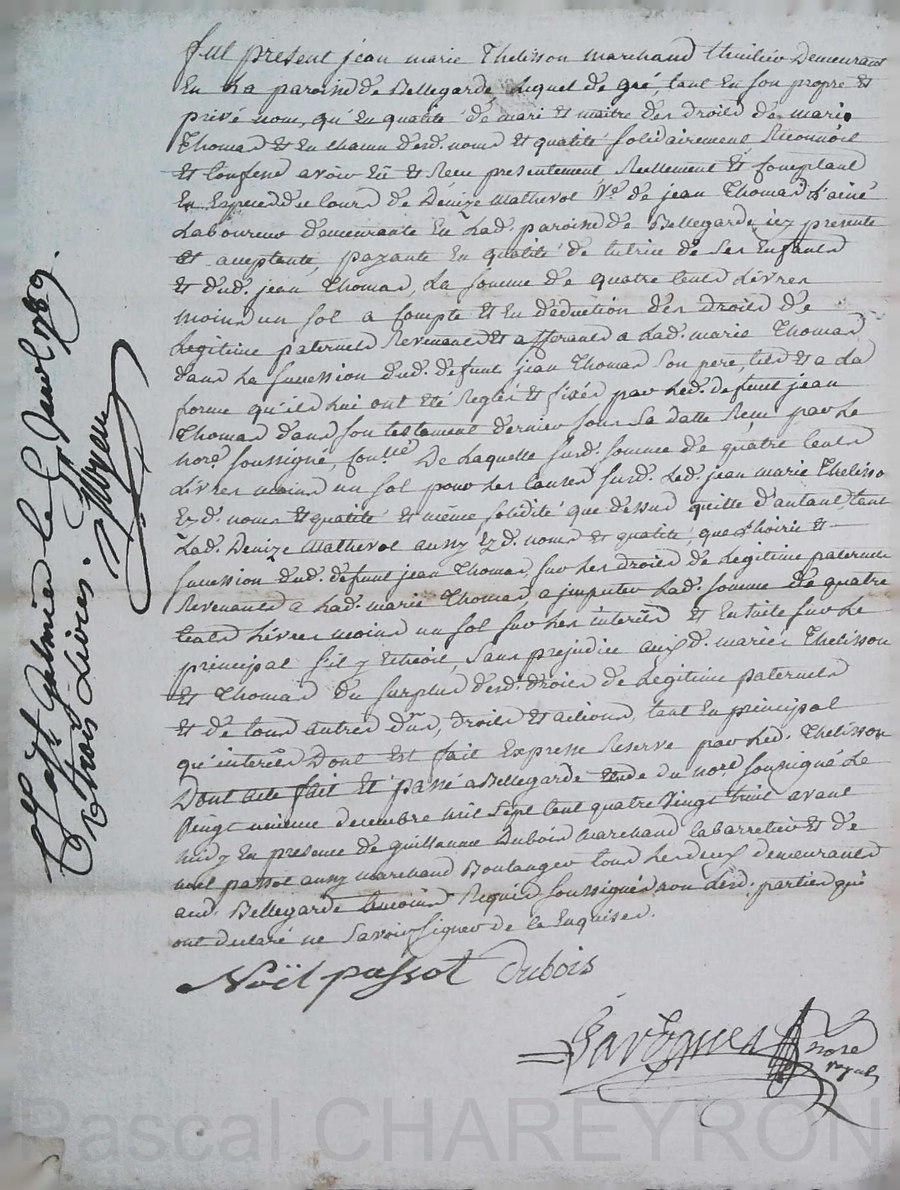 fut present jean marie Thelisson marchand demeurant
En La paroisse de Bellegarde Lequel de gré, tant En son propre Et
privé nom, qu'En qualité de mari Et maitre des droits de marie
Thomas Et En chacun desd. noms Et qualité solidairement Reconnoit
Et Confesse avoir Eu Et Recu presentement Reellement Et Comptant
En Especes du Cours de Denize Mathevot Ve. de jean Thomas L'ainé
Laboureur demeurante En Lad. paroisse de Bellegarde icy presente
Et acceptante payante En qualité de tutrice de Ses Enfants
Et dud. jean Thomas, La somme de quatre Cents Livres
moins un sol a Compte Et En deduction des droits de
Legitime paternels Revenants Et afferants a Lad. marie Thomas
dans La succession dud. defunt jean Thomas Son pere, tels Et a La
forme qu'ils Lui ont été Reglés Et fixés par Led. defunt jean
Thomas dans son testament dernier sous Sa datte Recu par Le
nore. soussigné, De Laquelle susd. somme de quatre Cents
Livres moins un sol pour Les Causes susd. Led. jean marie Thelisson
Ezd. noms Et qualité Et même solidité que dessus quitte d'autant, tant
Lad. Denize Mathevot aussy Ezd. noms Et qualité, que L'hoirie Et
succession dud. defunt jean Thomas, sur Les droits de Legitime paternels
Revenants a Lad. marie Thomas a jmputer Lad. somme de quatre
Cents Livres moins un sol sur Les interêts Et Ensuite sur Le
principal s'il y Echoit, sans prejudice auxd. mariés Thelisson
Et Thomas du surplus desd. droits de Legitime paternels
Et de tous autres dus, droits Et actions, tant En principal
qu'interêts Dont Est fait Expresse Reserve par Led. Thelisson
Dont acte fait Et passé a Bellegarde Etude du nore. soussigné Le
Vingt unieme decembre mil Sept Cent quatre Vingt huit avant
midy En presence de guillaume Dubois marchand Cabarretier Et de
noel passot aussy marchand Boulanger tous Les deux demeurants
aud. Bellegarde temoins Requis soussignés non Lesd. parties qui
ont declaré ne Savoir signer de ce Enquises.
Noël passot dubois
nore
royal
Ct. a St. Galmier le 4 Janv. 1789.
R trois Livres.